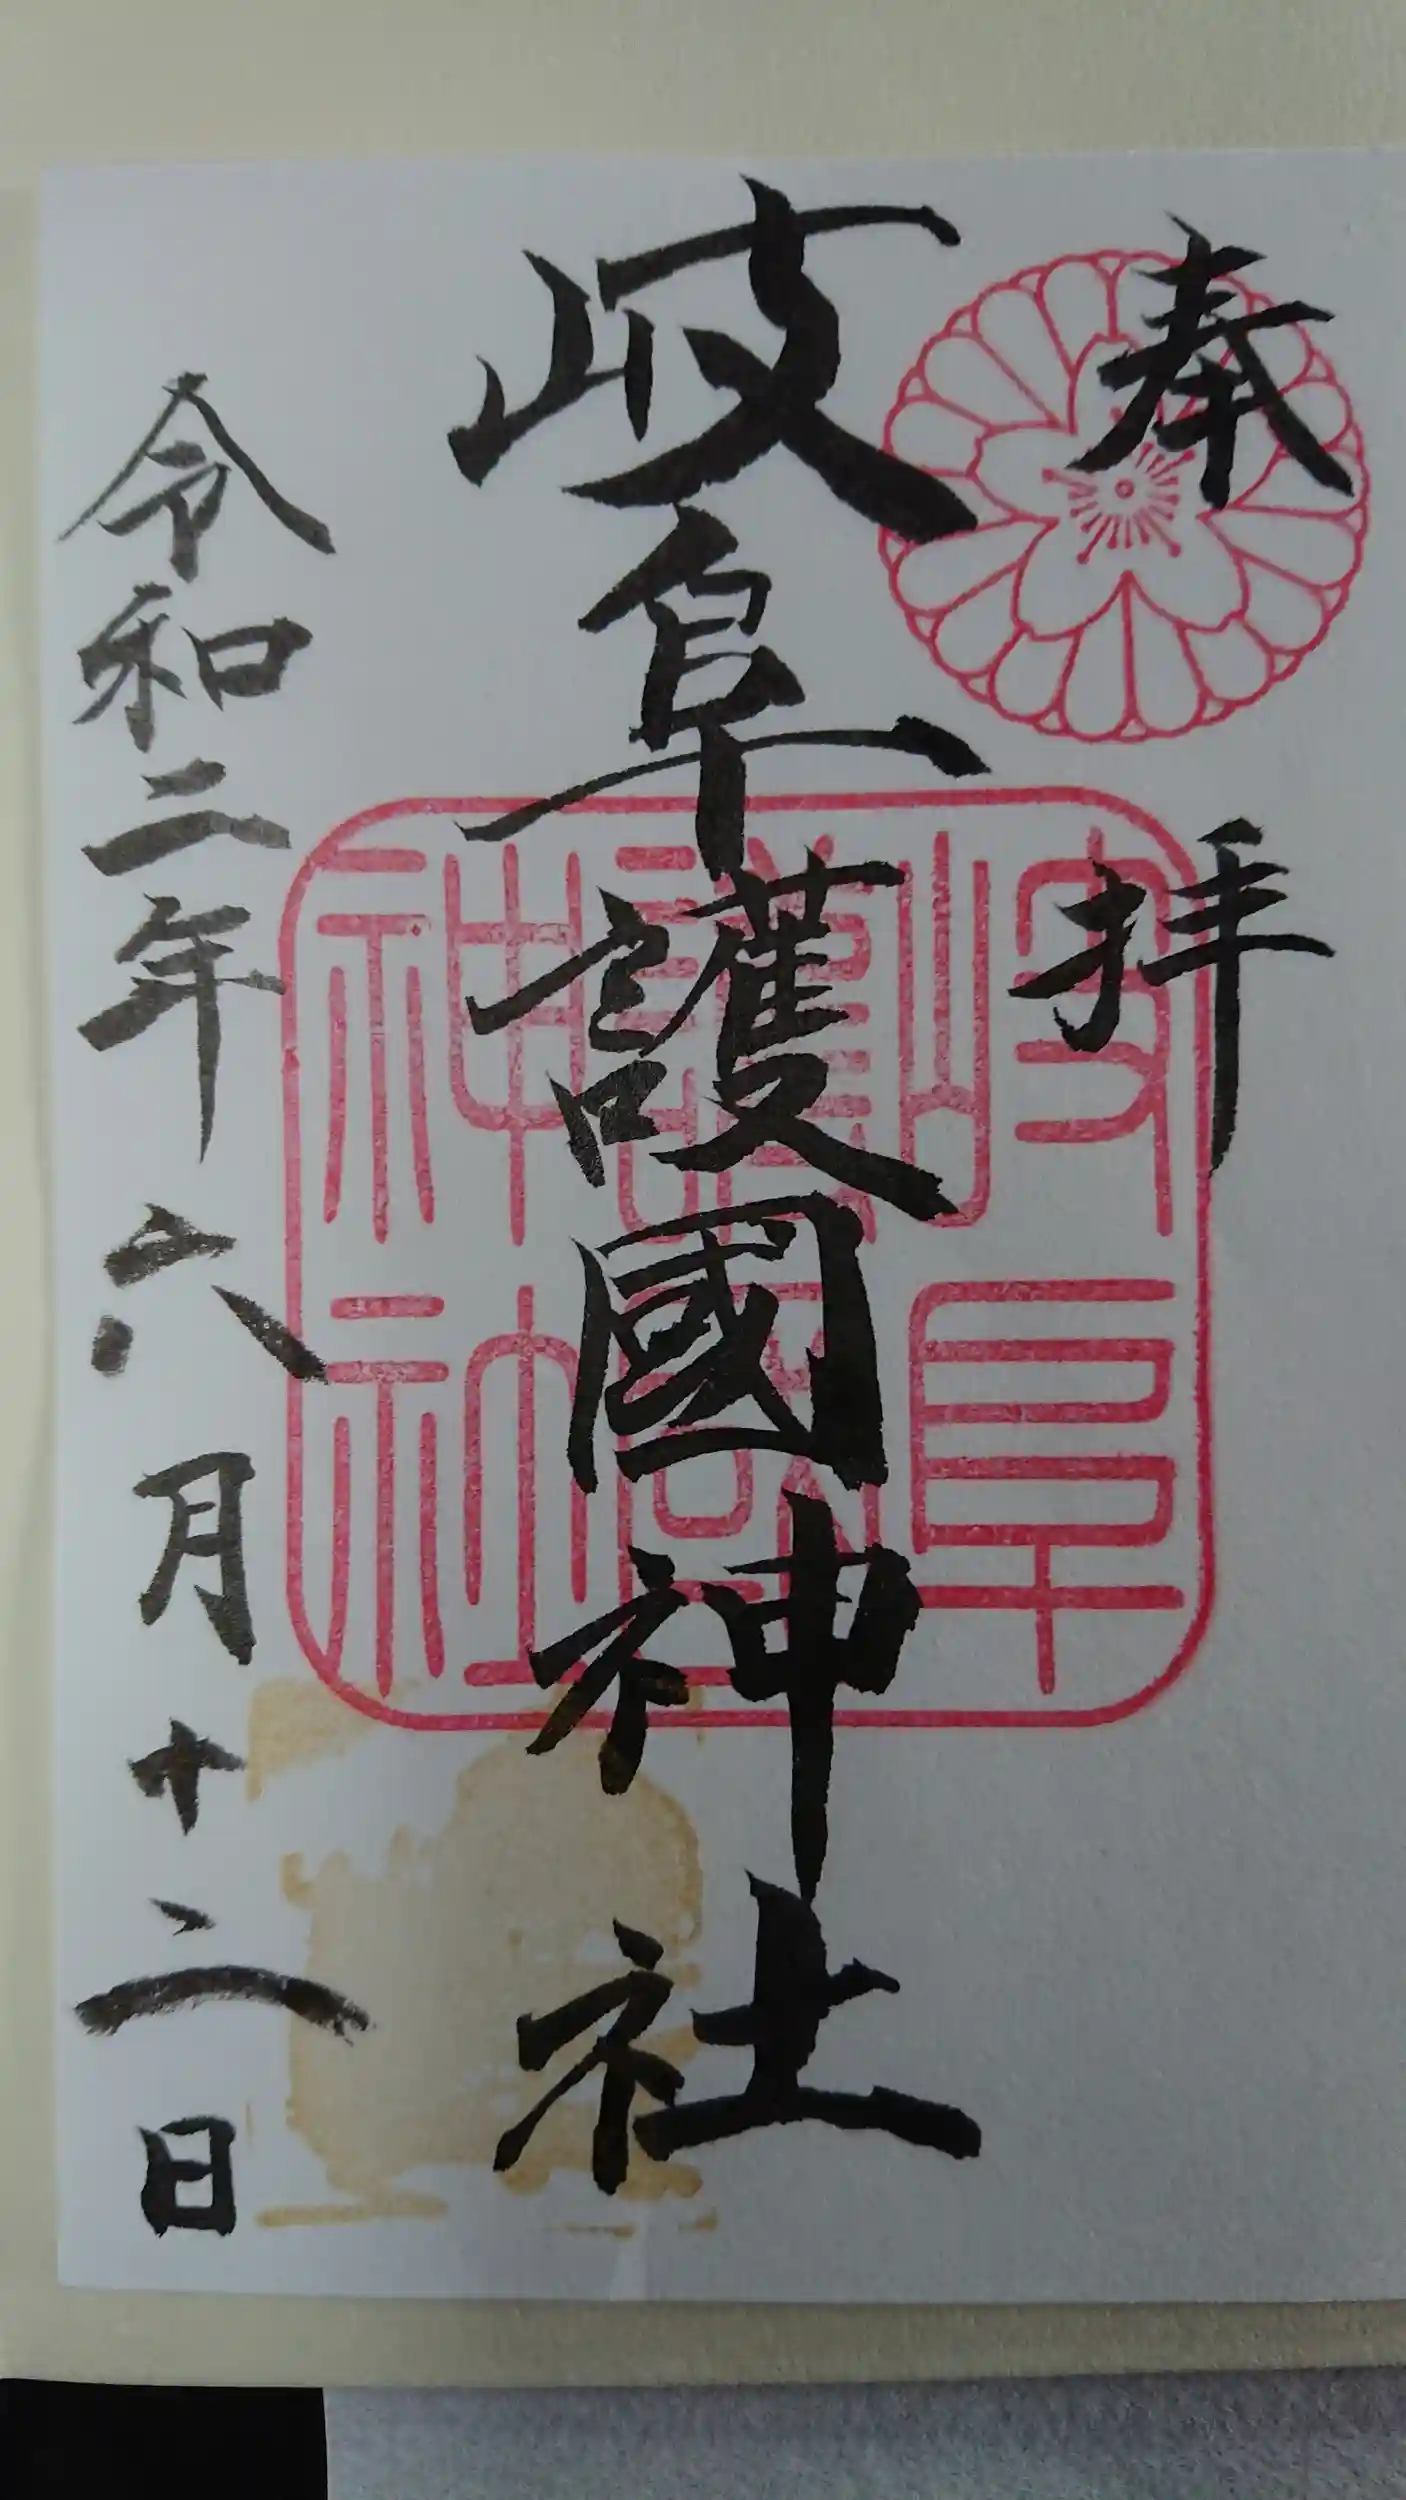 奉拝
岐阜護國神社
岐阜
護國
神社
令和二年六月十二日